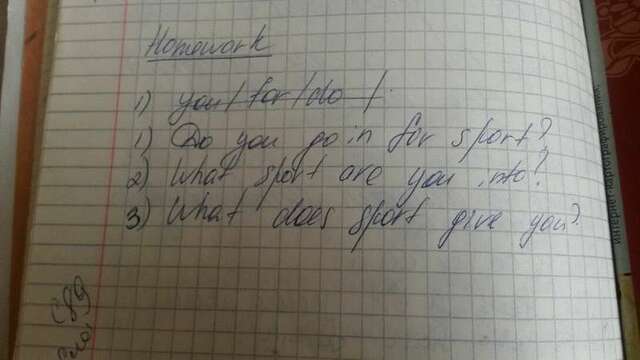 Homework
1) you / for / do /
1) Do you go in for sport?
2) What sport are you into?
3) What does sport give you?
интернет-картографирование